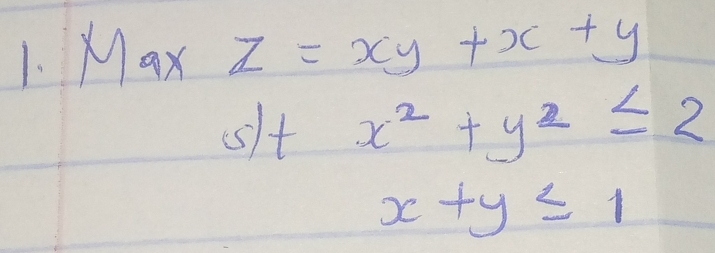 1. Max Z = xy + x + y
s/t x² + y² ≤ 2
x + y ≤ 1